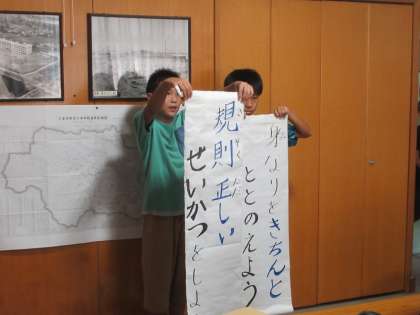 身なりをきちんと
ととのえよう
規則正しい
せいかつをしよ